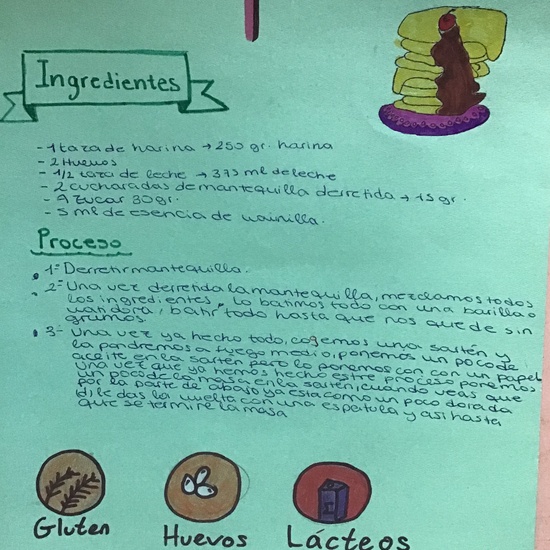 Ingredientes
- 1 taza de harina → 250 gr. harina
- 2 Huevos
- 1/2 taza de leche → 375 ml de leche
- 2 cucharadas de mantequilla derretida → 15 gr.
- Azucar 30gr.
- 5 ml de esencia de vainilla.
Proceso
• 1- Derretir mantequilla.
• 2- Una vez derretida la mantequilla, mezclamos todos
los ingredientes, lo batimos todo con una barilla o
batir todo hasta que nos quede sin
grumos
• 3- Una vez ya hecho todo, cogemos una sartén y
la pondremos a fuego medio, ponemos un poco de
aceite en la sartén pero lo ponemos con con un papel
una vez que ya hemos hecho este proceso ponemos
un poco de la masa en la sartén, cuando veas que
por la parte de abajo ya esta como un poco dorada
le das la vuelta con una espatula y asi hasta
que se termine la masa
Gluten
Huevos
Lácteos